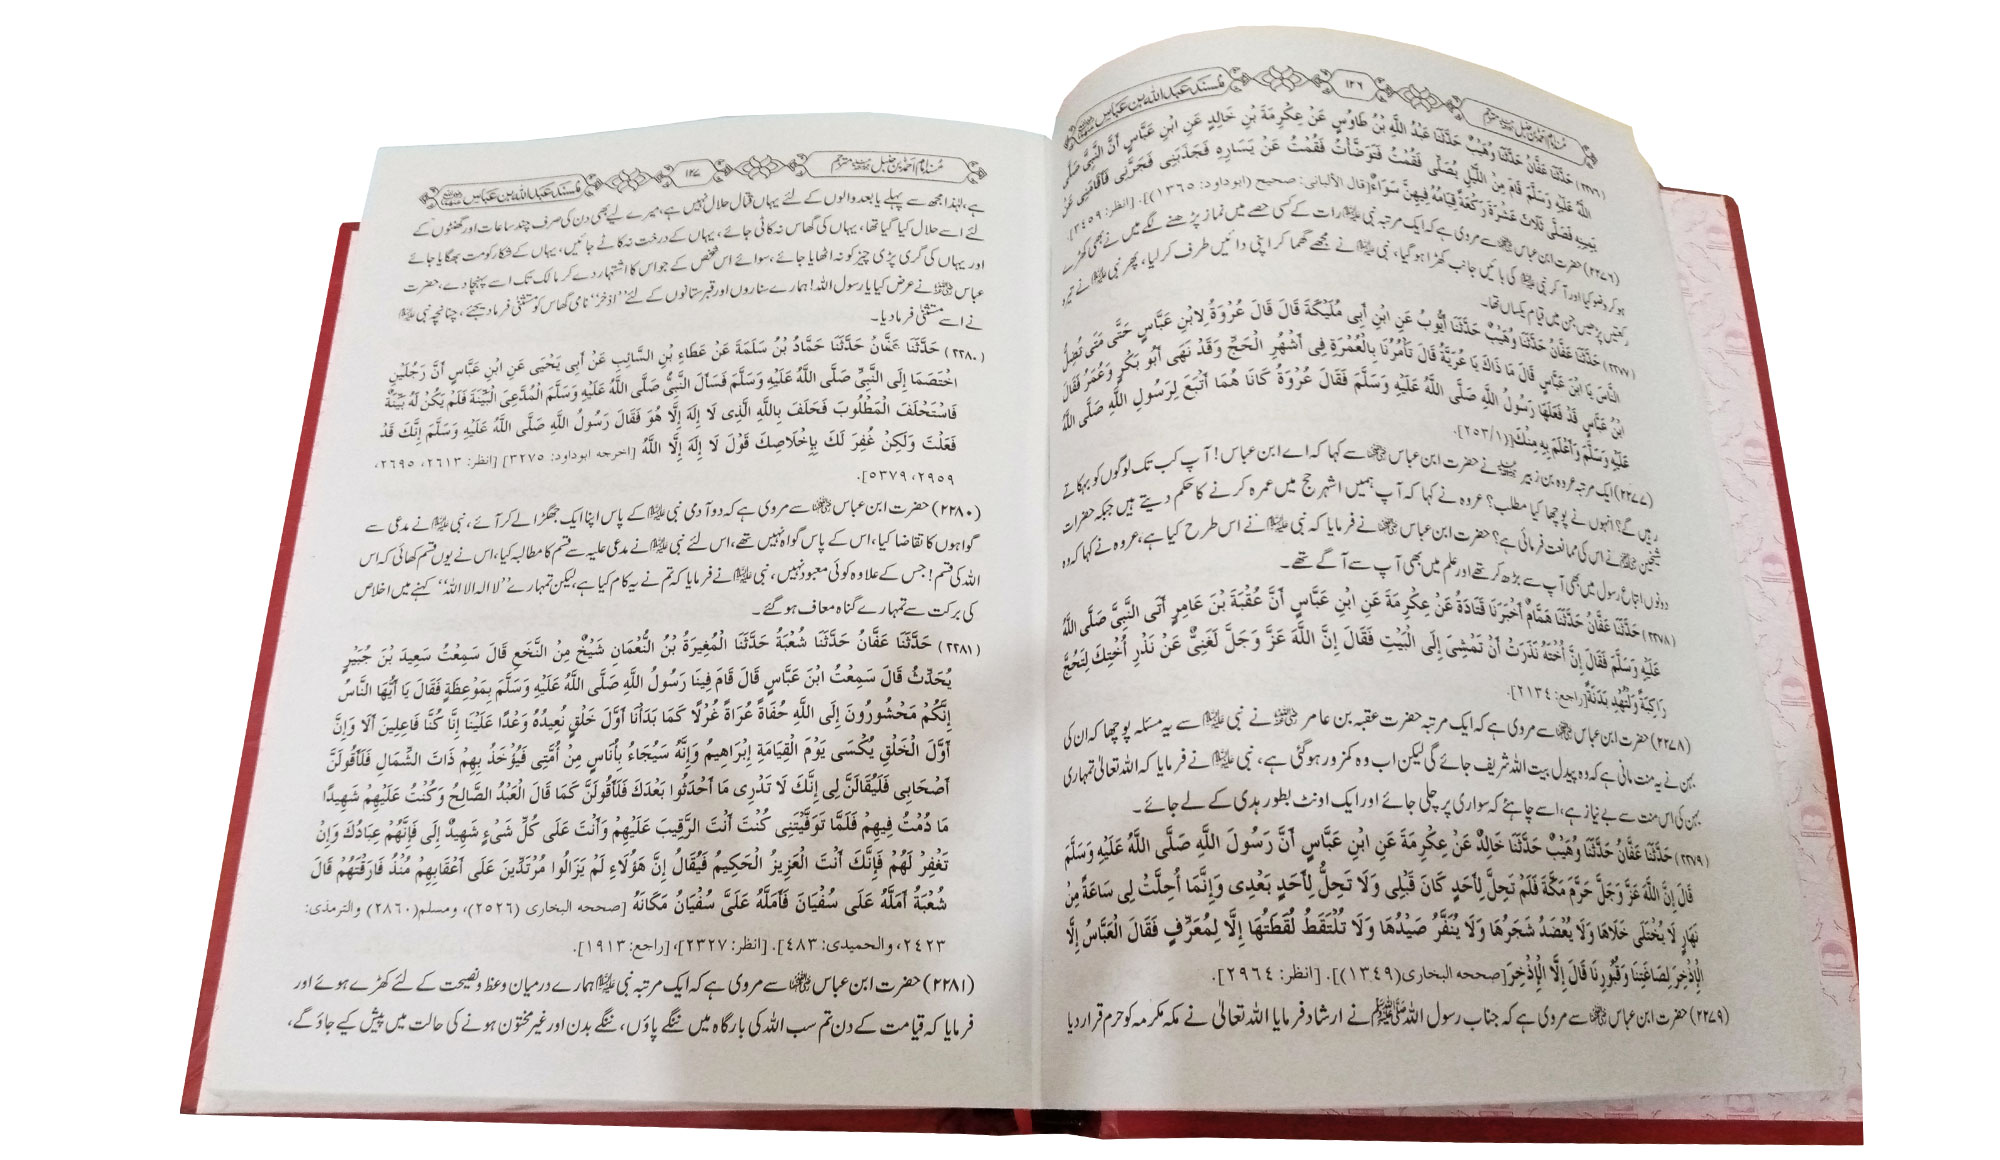 مُسند امام احمد بن حنبل مترجم
١٢٦
مُسند عبد الله بن عباس
(٢٢٧٦) حَدَّثَنَا عَفَّانُ حَدَّثَنَا وُهَيْبٌ حَدَّثَنَا عَبْدُ اللَّهِ بْنُ طَاوُسٍ عَنْ عِكْرِمَةَ بْنِ خَالِدٍ عَنِ ابْنِ عَبَّاسٍ أَنَّ النَّبِيَّ صَلَّى
اللَّهُ عَلَيْهِ وَسَلَّمَ قَامَ مِنْ اللَّيْلِ يُصَلِّي فَقُمْتُ فَتَوَضَّأْتُ فَقُمْتُ عَنْ يَسَارِهِ فَجَذَبَنِي فَجَرَّنِي فَأَقَامَنِي عَنْ
يَمِينِهِ فَصَلَّى ثَلَاثَ عَشْرَةَ رَكْعَةً قِيَامُهُ فِيهِنَّ سَوَاءٌ [قال الألباني: صحيح (ابوداود: ١٣٦٥)]. [انظر: ٣٤٥٩].
(٢٢٧٦) حضرت ابن عباس ؓ سے مروی ہے کہ ایک مرتبہ نبی ﷺ رات کے کسی حصے میں نماز پڑھنے لگے میں نے بھی کھڑے
ہو کر وضو کیا اور آ کر نبی ﷺ کی بائیں جانب کھڑا ہو گیا، نبی ﷺ نے مجھے گھما کر اپنی دائیں طرف کر لیا، پھر نبی ﷺ نے تیرہ
رکعتیں پڑھیں جن میں قیام یکساں تھا۔
(٢٢٧٧) حَدَّثَنَا عَفَّانُ حَدَّثَنَا وُهَيْبٌ حَدَّثَنَا أَيُّوبُ عَنِ ابْنِ أَبِي مُلَيْكَةَ قَالَ قَالَ عُرْوَةُ لِابْنِ عَبَّاسٍ حَتَّى مَتَى تُضِلُّ
النَّاسَ يَا ابْنَ عَبَّاسٍ قَالَ مَا ذَاكَ يَا عُرَيَّةُ قَالَ تَأْمُرُنَا بِالْعُمْرَةِ فِي أَشْهُرِ الْحَجِّ وَقَدْ نَهَى أَبُو بَكْرٍ وَعُمَرُ فَقَالَ
ابْنُ عَبَّاسٍ قَدْ فَعَلَهَا رَسُولُ اللَّهِ صَلَّى اللَّهُ عَلَيْهِ وَسَلَّمَ فَقَالَ عُرْوَةُ كَانَا هُمَا أَتْبَعَ لِرَسُولِ اللَّهِ صَلَّى اللَّهُ
عَلَيْهِ وَسَلَّمَ وَأَعْلَمَ بِهِ مِنْكَ [(٢٥٣/١)].
(٢٢٧٧) ایک مرتبہ عروہ بن زبیر نے حضرت ابن عباس ؓ سے کہا کہ اے ابن عباس! آپ کب تک لوگوں کو بہکاتے
رہیں گے؟ انہوں نے پوچھا کیا مطلب؟ عروہ نے کہا کہ آپ ہمیں اشہر حج میں عمرہ کرنے کا حکم دیتے ہیں جبکہ حضرات
شیخین ؓ نے اس کی ممانعت فرمائی ہے؟ حضرت ابن عباس ؓ نے فرمایا کہ نبی ﷺ نے اس طرح کیا ہے، عروہ نے کہا کہ وہ
دونوں اتباع رسول میں بھی آپ سے بڑھ کر تھے اور علم میں بھی آپ سے آگے تھے۔
(٢٢٧٨) حَدَّثَنَا عَفَّانُ حَدَّثَنَا هَمَّامٌ أَخْبَرَنَا قَتَادَةُ عَنْ عِكْرِمَةَ عَنِ ابْنِ عَبَّاسٍ أَنَّ عُقْبَةَ بْنَ عَامِرٍ أَتَى النَّبِيَّ صَلَّى اللَّهُ
عَلَيْهِ وَسَلَّمَ فَقَالَ إِنَّ أُخْتَهُ نَذَرَتْ أَنْ تَمْشِيَ إِلَى الْبَيْتِ فَقَالَ إِنَّ اللَّهَ عَزَّ وَجَلَّ لَغَنِيٌّ عَنْ نَذْرِ أُخْتِكَ لِتَحُجَّ
رَاكِبَةً وَلْتُهْدِ بَدَنَةً [راجع: ٢١٣٤].
(٢٢٧٨) حضرت ابن عباس ؓ سے مروی ہے کہ ایک مرتبہ حضرت عقبہ بن عامر ؓ نے نبی ﷺ سے یہ مسئلہ پوچھا کہ ان کی
بہن نے یہ منت مانی ہے کہ وہ پیدل بیت اللہ شریف جائے گی لیکن اب وہ کمزور ہو گئی ہے، نبی ﷺ نے فرمایا کہ اللہ تعالیٰ تمہاری
بہن کی اس منت سے بے نیاز ہے، اسے چاہئے کہ سواری پر چلی جائے اور ایک اونٹ بطور ہدی کے لے جائے۔
(٢٢٧٩) حَدَّثَنَا عَفَّانُ حَدَّثَنَا وُهَيْبٌ حَدَّثَنَا خَالِدٌ عَنْ عِكْرِمَةَ عَنِ ابْنِ عَبَّاسٍ أَنَّ رَسُولَ اللَّهِ صَلَّى اللَّهُ عَلَيْهِ وَسَلَّمَ
قَالَ إِنَّ اللَّهَ عَزَّ وَجَلَّ حَرَّمَ مَكَّةَ فَلَمْ تَحِلَّ لِأَحَدٍ كَانَ قَبْلِي وَلَا تَحِلُّ لِأَحَدٍ بَعْدِي وَإِنَّمَا أُحِلَّتْ لِي سَاعَةً مِنْ
نَهَارٍ لَا يُخْتَلَى خَلَاهَا وَلَا يُعْضَدُ شَجَرُهَا وَلَا يُنَفَّرُ صَيْدُهَا وَلَا تُلْتَقَطُ لُقَطَتُهَا إِلَّا لِمُعَرِّفٍ فَقَالَ الْعَبَّاسُ إِلَّا
الْإِذْخِرَ لِصَاغَتِنَا وَقُبُورِنَا قَالَ إِلَّا الْإِذْخِرَ [صححه البخاري (١٣٤٩)]. [انظر: ٢٩٦٤].
(٢٢٧٩) حضرت ابن عباس ؓ سے مروی ہے کہ جناب رسول اللہ ﷺ نے ارشاد فرمایا اللہ تعالیٰ نے مکہ مکرمہ کو حرم قرار دیا
مُسند امام احمد بن حنبل مترجم
١٢٧
مُسند عبد الله بن عباس
ہے، لہٰذا مجھ سے پہلے یا بعد والوں کے لئے یہاں قتال حلال نہیں ہے، میرے لیے بھی دن کی صرف چند ساعات اور گھنٹوں کے
لئے اسے حلال کیا گیا تھا، یہاں کی گھاس نہ کاٹی جائے، یہاں کے درخت نہ کاٹے جائیں، یہاں کے شکار کو مت بھگایا جائے
اور یہاں کی گری پڑی چیز کو نہ اٹھایا جائے، سوائے اس شخص کے جو اس کا اشتہار دے کر مالک تک اسے پہنچا دے، حضرت
عباس ؓ نے عرض کیا یا رسول اللہ! ہمارے سناروں اور قبرستانوں کے لئے ”اذخر“ نامی گھاس کو مستثنیٰ فرما دیجئے، چنانچہ نبی ﷺ
نے اسے مستثنیٰ فرما دیا۔
(٢٢٨٠) حَدَّثَنَا عَفَّانُ حَدَّثَنَا حَمَّادُ بْنُ سَلَمَةَ عَنْ عَطَاءِ بْنِ السَّائِبِ عَنْ أَبِي يَحْيَى عَنِ ابْنِ عَبَّاسٍ أَنَّ رَجُلَيْنِ
اخْتَصَمَا إِلَى النَّبِيِّ صَلَّى اللَّهُ عَلَيْهِ وَسَلَّمَ فَسَأَلَ النَّبِيُّ صَلَّى اللَّهُ عَلَيْهِ وَسَلَّمَ الْمُدَّعِيَ الْبَيِّنَةَ فَلَمْ يَكُنْ لَهُ بَيِّنَةٌ
فَاسْتَحْلَفَ الْمَطْلُوبَ فَحَلَفَ بِاللَّهِ الَّذِي لَا إِلَهَ إِلَّا هُوَ فَقَالَ رَسُولُ اللَّهِ صَلَّى اللَّهُ عَلَيْهِ وَسَلَّمَ إِنَّكَ قَدْ
فَعَلْتَ وَلَكِنْ غُفِرَ لَكَ بِإِخْلَاصِكَ قَوْلَ لَا إِلَهَ إِلَّا اللَّهُ [اخرجه ابوداود: ٣٢٧٥] [انظر: ٢٦١٣، ٢٦٩٥،
٢٩٥٩، ٥٣٧٩].
(٢٢٨٠) حضرت ابن عباس ؓ سے مروی ہے کہ دو آدمی نبی ﷺ کے پاس اپنا ایک جھگڑا لے کر آئے، نبی ﷺ نے مدعی سے
گواہوں کا تقاضا کیا، اس کے پاس گواہ نہیں تھے، اس لئے نبی ﷺ نے مدعی علیہ سے قسم کا مطالبہ کیا، اس نے یوں قسم کھائی کہ اس
اللہ کی قسم! جس کے علاوہ کوئی معبود نہیں، نبی ﷺ نے فرمایا کہ تم نے یہ کام کیا ہے، لیکن تمہارے ”لا الہ الا اللہ“ کہنے میں اخلاص
کی برکت سے تمہارے گناہ معاف ہو گئے۔
(٢٢٨١) حَدَّثَنَا عَفَّانُ حَدَّثَنَا شُعْبَةُ حَدَّثَنَا الْمُغِيرَةُ بْنُ النُّعْمَانِ شَيْخٌ مِنْ النَّخَعِ قَالَ سَمِعْتُ سَعِيدَ بْنَ جُبَيْرٍ
يُحَدِّثُ قَالَ سَمِعْتُ ابْنَ عَبَّاسٍ قَالَ قَامَ فِينَا رَسُولُ اللَّهِ صَلَّى اللَّهُ عَلَيْهِ وَسَلَّمَ بِمَوْعِظَةٍ فَقَالَ يَا أَيُّهَا النَّاسُ
إِنَّكُمْ مَحْشُورُونَ إِلَى اللَّهِ حُفَاةً عُرَاةً غُرْلًا كَمَا بَدَأْنَا أَوَّلَ خَلْقٍ نُعِيدُهُ وَعْدًا عَلَيْنَا إِنَّا كُنَّا فَاعِلِينَ أَلَا وَإِنَّ
أَوَّلَ الْخَلْقِ يُكْسَى يَوْمَ الْقِيَامَةِ إِبْرَاهِيمُ وَإِنَّهُ سَيُجَاءُ بِأُنَاسٍ مِنْ أُمَّتِي فَيُؤْخَذُ بِهِمْ ذَاتَ الشِّمَالِ فَلَأَقُولَنَّ
أَصْحَابِي فَلَيُقَالَنَّ لِي إِنَّكَ لَا تَدْرِي مَا أَحْدَثُوا بَعْدَكَ فَلَأَقُولَنَّ كَمَا قَالَ الْعَبْدُ الصَّالِحُ وَكُنْتُ عَلَيْهِمْ شَهِيدًا
مَا دُمْتُ فِيهِمْ فَلَمَّا تَوَفَّيْتَنِي كُنْتَ أَنْتَ الرَّقِيبَ عَلَيْهِمْ وَأَنْتَ عَلَى كُلِّ شَيْءٍ شَهِيدٌ إِلَى فَإِنَّهُمْ عِبَادُكَ وَإِنْ
تَغْفِرْ لَهُمْ فَإِنَّكَ أَنْتَ الْعَزِيزُ الْحَكِيمُ فَيُقَالُ إِنَّ هَؤُلَاءِ لَمْ يَزَالُوا مُرْتَدِّينَ عَلَى أَعْقَابِهِمْ مُنْذُ فَارَقْتَهُمْ قَالَ
شُعْبَةُ أَمَلَّهُ عَلَى سُفْيَانَ فَأَمَلَّهُ عَلَيَّ سُفْيَانُ مَكَانَهُ [صححه البخاري (٢٥٢٦)، ومسلم (٢٨٦٠) والترمذي:
٢٤٢٣، والحميدي: ٤٨٣]. [انظر: ٢٣٢٧]، [راجع: ١٩١٣].
(٢٢٨١) حضرت ابن عباس ؓ سے مروی ہے کہ ایک مرتبہ نبی ﷺ ہمارے درمیان وعظ و نصیحت کے لئے کھڑے ہوئے اور
فرمایا کہ قیامت کے دن تم سب اللہ کی بارگاہ میں ننگے پاؤں، ننگے بدن اور غیر مختون ہونے کی حالت میں پیش کیے جاؤ گے،